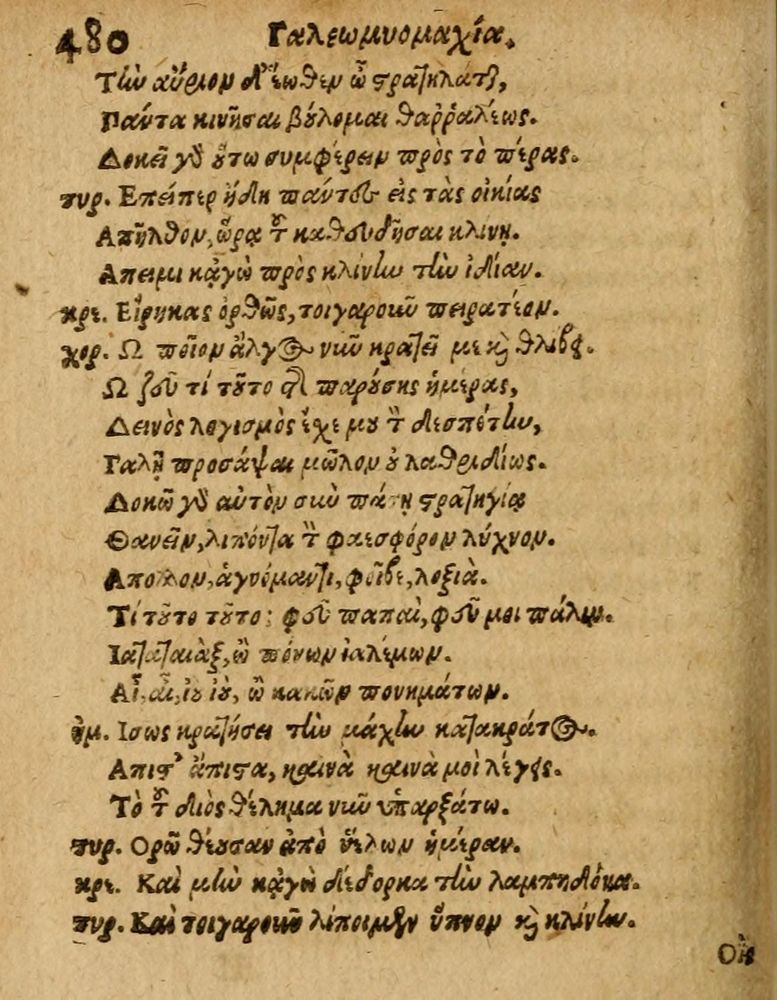 480 Γαλεωμυομαχία.
Τὴν αὔριον δ' ἕωθεν ὦ στρατηλάτα,
Πάντα κινῆσαι βούλομαι θαῤῥαλέως.
Δοκεῖ γὰρ οὕτω συμφέρειν πρὸς τὸ πέρας.
τυρ. Επείπερ ἤδη πάντες εἰς τὰς οἰκίας
Απῆλθον, ὥρα τοῦ καθευδῆσαι κλίνῃ.
Απειμι κᾀγὼ πρὸς κλίνην τὴν ἰδίαν.
κρε. Εἴρηκας ὀρθῶς, τοιγαροῦν πειρατέον.
χορ. Ω ποῖον ἄλγος νῦν κρατεῖ με καὶ θλίβει.
Ω ζεῦ τί τοῦτο διὰ παρούσης ἡμέρας,
Δεινὸς λογισμὸς ἔχε μου τὸν δεσπότην,
Γαλῇ προσάψαι μῶλον οὐ λαθριδίως.
Δοκῶ γὰρ αὐτὸν σὺν πάσῃ στρατηγίᾳ
Θανεῖν, λιπόντα τὸν φαεσφόρον λύχνον.
Απολλον, ἁγνόμαντι, φοῖβε, λοξιὰ.
Τί τοῦτο τοῦτο; φεῦ παπαὶ, φεῦ μοι πάλιν.
Ιαταταιὰξ, ὢ πόνων ἰαλέμων.
Αἲ, αἲ, ἰοὺ ἰοὺ, ὢ κακῶν πονημάτων.
ἡμ. Ισως κρατήσει τὴν μάχην κατακράτος.
Απιστ' ἄπιστα, καινὰ καινὰ μοὶ λέγεις.
Τὸ τοῦ διὸς θέλημα νῦν ὑπαρξάτω.
τυρ. Ορῶ θέουσαν ἀπὸ ὕελων ἡμέραν.
κρε. Καὶ μὴν κᾀγὼ δέδορκα τὴν λαμπηδόνα.
τυρ. Καὶ τοιγαροῦν λίποιμεν ὕπνον καὶ κλίνην.
Οὐκ